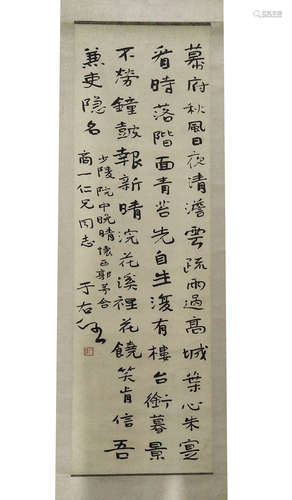 幕府秋風日夜清澹雲疏雨過高城葉心朱實
看時落階面青苔先自生復有樓台銜暮景
不勞鐘鼓報新晴浣花溪裡花饒笑肯信吾
兼吏隐名
少陵院中晚晴懷西郭茅舍
商一仁兄同志
于右任